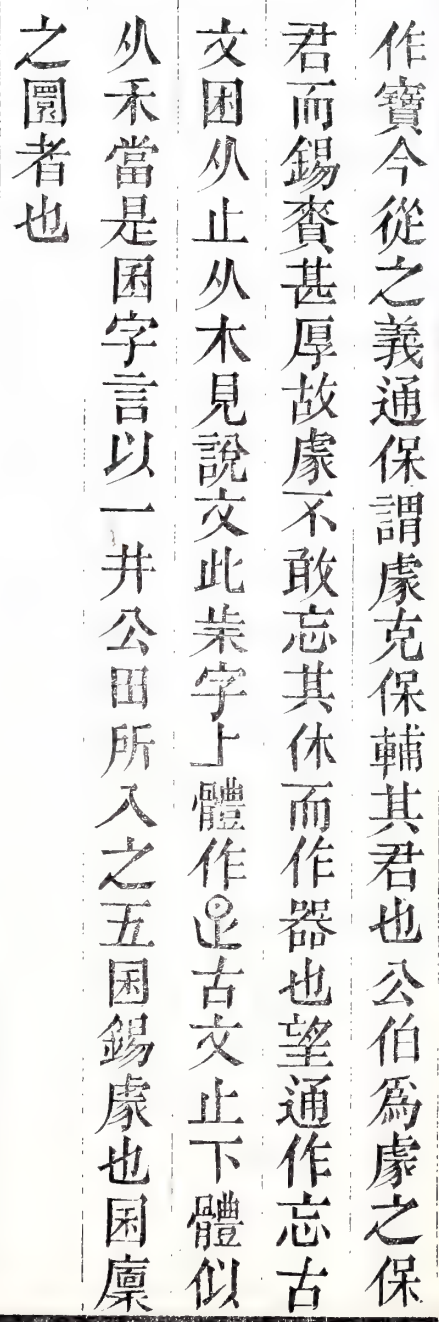 作寶今從之義通保謂豦克保輔其君也公伯爲豦之保
君而錫賚甚厚故豦不敢忘其休而作器也望通作忘古
文困从止从木見說文此字上體作古文止下體似
从禾當是囷字言以一井公田所入之五囷錫豦也囷廩
之圜者也